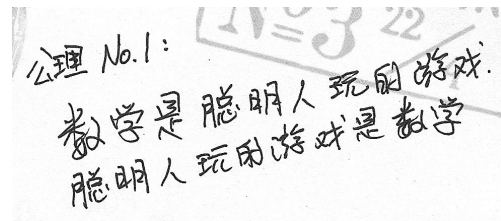 N=3 22
公理 No.1:
数学是聪明人玩的游戏.
聪明人玩的游戏是数学